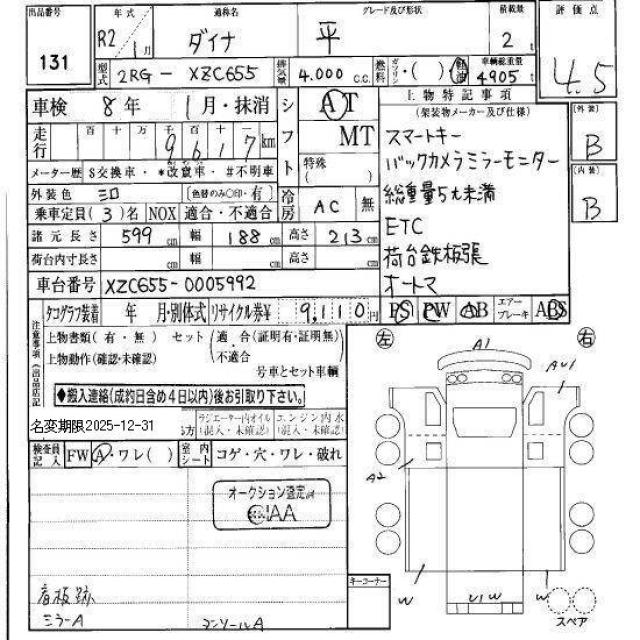 出品番号 年式 通称名 グレード及び形状 積載量 評価点
131 R2/1月 ダイナ 平 2t 4.5
型式 2RG-XZC655 排気量 4.000 C.C. 燃料 ガソリン・( )軽油 車輌総重量 4905
車検 8年 1月・抹消 シフト AT 上物特記事項
(架装物メーカー及び仕様)
走行 百 十 万 千 百 十 一 MT スマートキー
9 6 1 7 km バックカメラミラーモニター
メーター歴 S交換車・*改竄車・#不明車 特殊( ) 総重量5t未満
外装色 シロ (色替のみ○印・有) 冷房 AC 無 ETC
乗車定員(3)名 NOX 適合・不適合 荷台鉄板張
諸元長さ 599cm 幅 188cm 高さ 213cm オートマ
荷台内寸長さ cm 幅 cm 高さ cm
車台番号 XZC655-0005992
タコグラフ装着 年 月・別体式 リサイクル券¥ 9,110円 PS PW AB エアーブレーキ ABS
[外装] B
[内装] B
注意事項(出品店記
上物書類(有・無) セット(適合(証明有・証明無)
上物動作(確認・未確認) 不適合
号車とセット車輌
◆搬入連絡(成約日含め4日以内)後お引取り下さい。
名変期限2025-12-31
ラジエーター内オイル(混入・未確認) エンジン内水(混入・未確認)
検査員記入 FW A・ワレ( ) 室内シート コゲ・穴・ワレ・破れ
オークション査定
AA
看板跡
ミラーA
コンソールA
キーコーナー
左 右
A1
A2
W U1W W
スペア